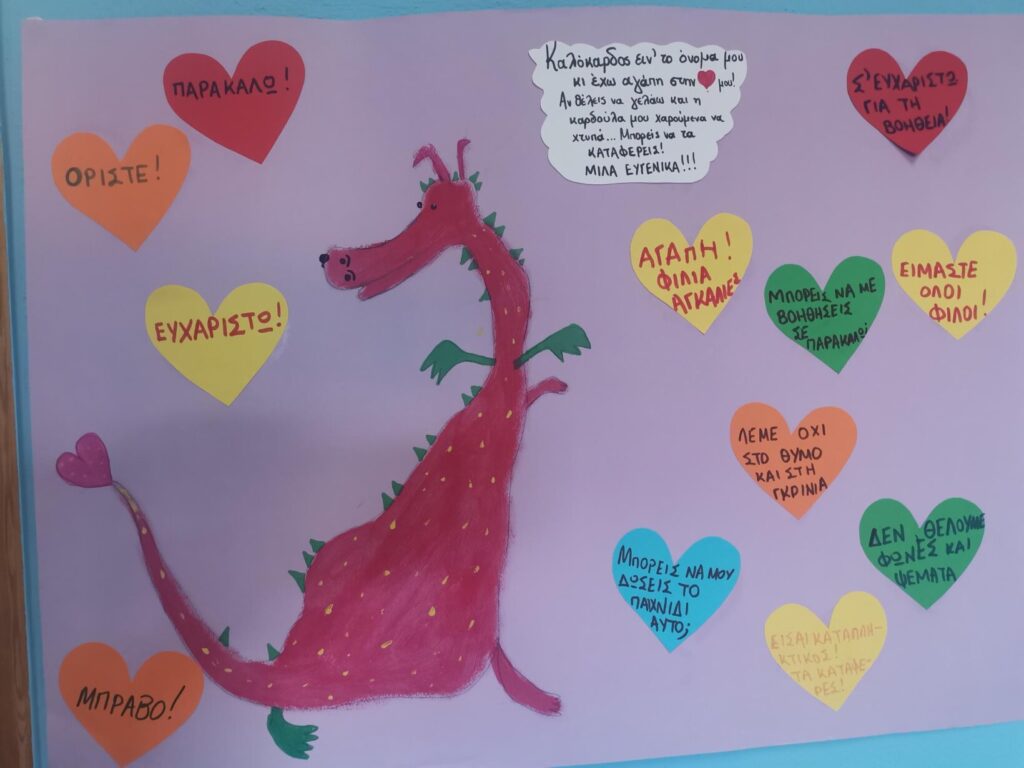 ΠΑΡΑΚΑΛΩ!
ΟΡΙΣΤΕ!
ΕΥΧΑΡΙΣΤΩ!
ΜΠΡΑΒΟ!
Καλόκαρδος ειν' το όνομα μου
κι έχω αγάπη στην μου!
Αν θέλεις να γελάω και η
καρδούλα μου χαρούμενα να
χτυπά... Μπορείς να τα
ΚΑΤΑΦΕΡΕΙΣ!
ΜΙΛΑ ΕΥΓΕΝΙΚΑ!!!
Σ'ΕΥΧΑΡΙΣΤΩ
ΓΙΑ ΤΗ
ΒΟΗΘΕΙΑ!
ΑΓΑΠΗ!
ΦΙΛΙΑ
ΑΓΚΑΛΙΕΣ
ΜΠΟΡΕΙΣ ΝΑ ΜΕ
ΒΟΗΘΗΣΕΙΣ
ΣΕ
ΠΑΡΑΚΑΛΩ;
ΕΙΜΑΣΤΕ
ΟΛΟΙ
ΦΙΛΟΙ!
ΛΕΜΕ ΟΧΙ
ΣΤΟ ΘΥΜΟ
ΚΑΙ ΣΤΗ
ΓΚΡΙΝΙΑ
ΜΠΟΡΕΙΣ ΝΑ ΜΟΥ
ΔΩΣΕΙΣ ΤΟ
ΠΑΙΧΝΙΔΙ
ΑΥΤΟ;
ΔΕΝ ΘΕΛΟΥΜΕ
ΦΩΝΕΣ ΚΑΙ
ΨΕΜΑΤΑ
ΕΙΣΑΙ ΚΑΤΑΠΛΗ-
ΚΤΙΚΟΣ!
ΤΑ ΚΑΤΑΦΕ-
ΡΕΣ!